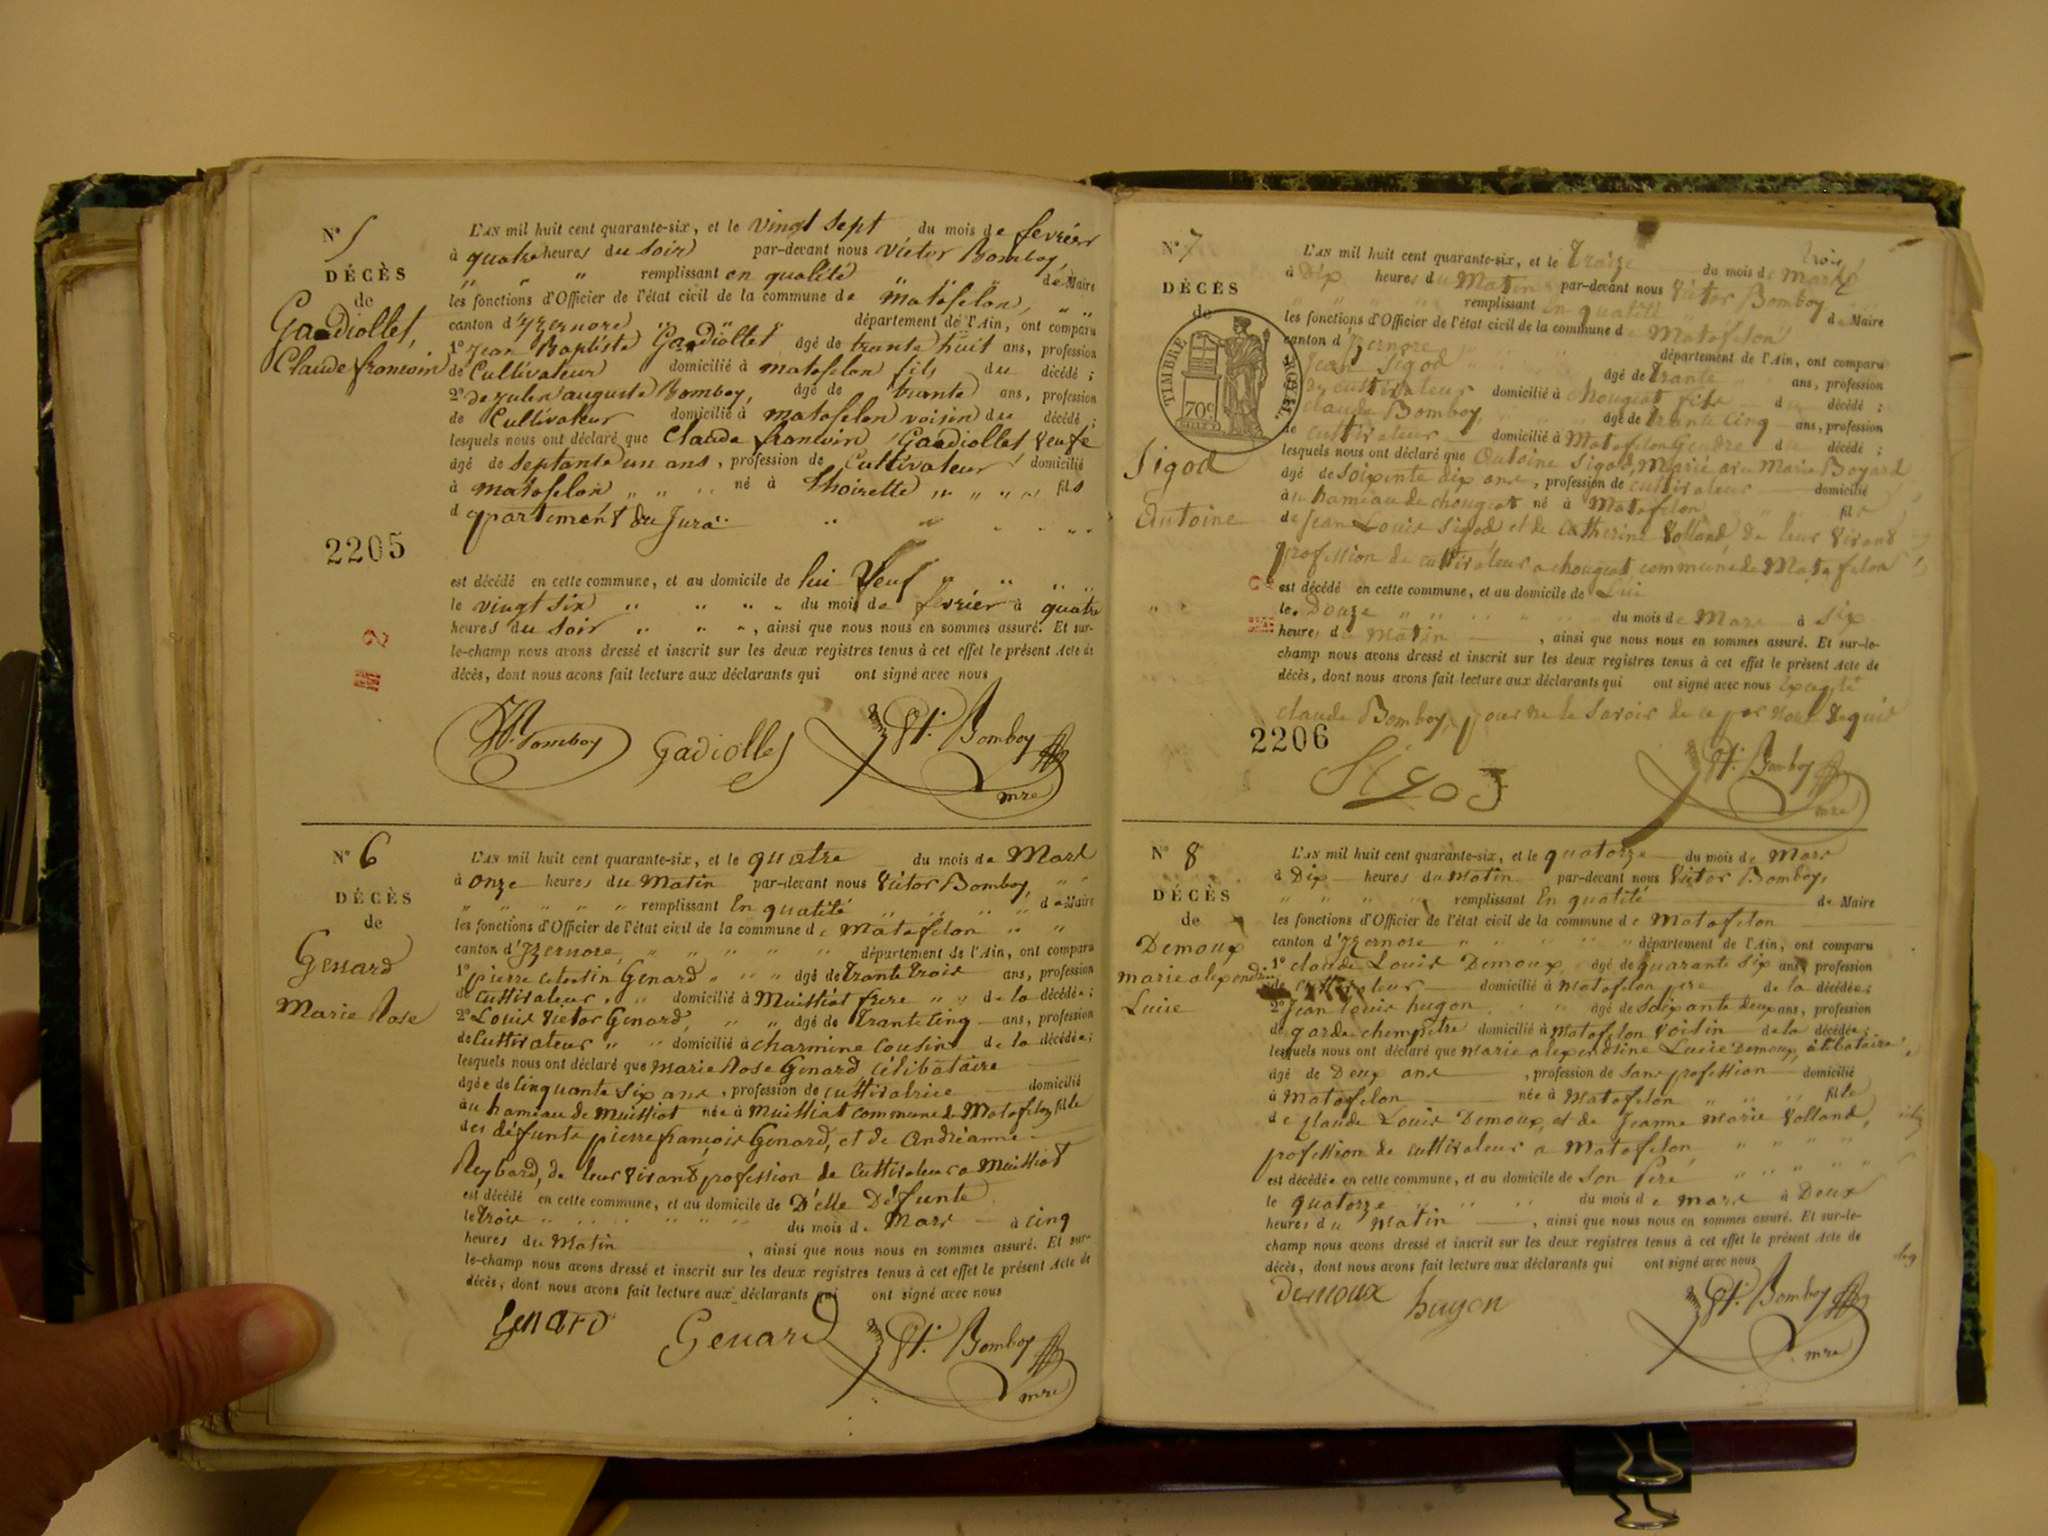 N° 5
DÉCÈS
de
Gaudiollet,
Claude francoin
2205
L'AN mil huit cent quarante-six, et le vingt sept du mois de fevrier
à quatre heures du soir par-devant nous victor Bomboy,
" " remplissant en qualité " " " de Maire
les fonctions d'Officier de l'état civil de la commune de matafelon,
canton d'Yzernore département de l'Ain, ont comparu
1° Jean Baptiste Gaudiollet âgé de trante huit ans, profession
de Cultivateur domicilié à matafelon fils du décédé ;
2° auguste Bomboy, âgé de trante ans, profession
de Cultivateur domicilié à matafelon voisin du décédé ;
lesquels nous ont déclaré que Claude francoin Gaudiollet veufe
âgé de septante un ans, profession de Cultivateur domicilié
à matafelon " " " né à thoirette " " " " fils
département du Jura " " " " "
est décédé en cette commune, et au domicile de lui Veuf " " " "
le vingt six " " " du mois de fevrier à quatre
heures du soir " " " , ainsi que nous nous en sommes assuré. Et sur-
le-champ nous avons dressé et inscrit sur les deux registres tenus à cet effet le présent Acte de
décès, dont nous avons fait lecture aux déclarants qui ont signé avec nous
Bomboy Gadiollet Vt. Bomboy
mre
N° 6
DÉCÈS
de
Genard
Marie Rose
L'AN mil huit cent quarante-six, et le quatre du mois de Mars
à onze heures du Matin par-devant nous Victor Bomboy, " "
" " " " " remplissant En qualité " " " " de Maire
les fonctions d'Officier de l'état civil de la commune de Matafelon " "
canton d'Yzernore, " " " " " département de l'Ain, ont comparu
1° pierre celestin Genard " " " âgé de trante trois ans, profession
de cultivateur, " " domicilié à Muissiat frere " " de la décédée ;
2° Louis Victor Genard, " " âgé de trante cinq ans, profession
de Cultivateur " " domicilié à charmine cousin de la décédée ;
lesquels nous ont déclaré que marie Rose Genard, célibataire
âgée de cinquante six ans, profession de cultivatrice domicilié
au hameau de Muissiat née à Muissiat commune de Matafelon fille
des défunts pierre françois Genard, et de Andréanne
Reybard, de leur vivant profession de cultivateur a Muissiat
est décédé en cette commune, et au domicile de D'elle Défunte
le trois " " " " " " du mois de Mars à cinq
heures du Matin , ainsi que nous nous en sommes assuré. Et sur-
le-champ nous avons dressé et inscrit sur les deux registres tenus à cet effet le présent Acte de
décès, dont nous avons fait lecture aux déclarants qui ont signé avec nous
Genard Genard Vt. Bomboy
mre
N° 7
DÉCÈS
de
TIMBRE ROYAL
70c
Sigod
Antoine
2206
L'AN mil huit cent quarante-six, et le Traize du mois de mars
à Dix heures du Matin par-devant nous Victor Bomboy
remplissant en qualité de Maire
les fonctions d'Officier de l'état civil de la commune de Matafelon
canton d'Yzernore département de l'Ain, ont comparu
Jean Sigod âgé de trante ans, profession
de cultivateur domicilié à chougeat fils du décédé ;
claude Bomboy âgé de trante cinq ans, profession
de cultivateur domicilié à Matafelon Gendre du décédé ;
lesquels nous ont déclaré que Antoine Sigod, Marié avec Marie Boyard
âgé de soixente dix ans, profession de cultivateur domicilié
au hameau de chougeat né à Matafelon fils
de Jean Louis Sigod et de Catherine Volland de leur vivant
profession de cultivateur a chougeat commune de Matafelon
est décédé en cette commune, et au domicile de Lui
le Douze " " " " " du mois de Mars à Six
heures de Matin , ainsi que nous nous en sommes assuré. Et sur-le-
champ nous avons dressé et inscrit sur les deux registres tenus à cet effet le présent Acte de
décès, dont nous avons fait lecture aux déclarants qui ont signé avec nous Excepté
claude Bomboy, pour ne le savoir de ce par nous Requis
Sigod Vt. Bomboy
mre
N° 8
DÉCÈS
de
Demoux
marie alexandrine
Lucie
L'AN mil huit cent quarante-six, et le quatorze du mois de Mars
à Dix heures du Matin par-devant nous Victor Bomboy,
" " " " remplissant En qualité de Maire
les fonctions d'Officier de l'état civil de la commune de Matafelon
canton d'Yzernore " " " " " " département de l'Ain, ont comparu
1° claude Louis Demoux, âgé de quarante six ans, profession
de cultivateur domicilié à matafelon pere de la décédée ;
2° Jean louis hugon, " " âgé de soixante deux ans, profession
de garde chempêtre domicilié à matafelon voisin de la décédée ;
lesquels nous ont déclaré que marie alexendrine Lucie Demoux, célibataire
âgé de Deux ans , profession de sans profession domicilié
à Matafelon née à Matafelon " " " fille
de claude Louis Demoux, et de Jeanne marie Volland,
profession de cultivateur a Matafelon " " " " "
est décédée en cette commune, et au domicile de son Peré " " " " "
le quatorze " " " " du mois de mars à Deux
heures du Matin , ainsi que nous nous en sommes assuré. Et sur-le-
champ nous avons dressé et inscrit sur les deux registres tenus à cet effet le présent Acte de
décès, dont nous avons fait lecture aux déclarants qui ont signé avec nous
Demoux hugon Vt. Bomboy
mre